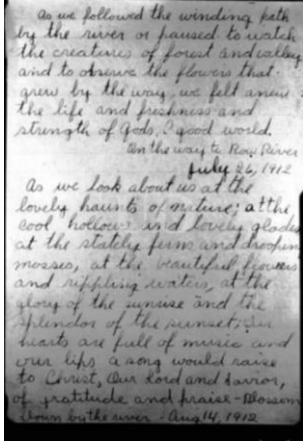 As we followed the winding path
by the river or paused to watch
the creatures of forest and valley
and to observe the flowers that
grew by the way, we felt anew
the life and freshness and
strength of Gods, good world.
On the way to Row River
July 26, 1912
As we look about us at the
lovely haunts of nature; at the
cool hollows and lovely glades
at the stately ferns and drooping
mosses, at the beautiful flowers
and rippling waters, at the
glory of the sunrise and the
splendor of the sunset; our
hearts are full of music and
our lips a song would raise
to Christ, Our Lord and Savior,
of gratitude and praise - Blossom
down by the river - Aug 14, 1912